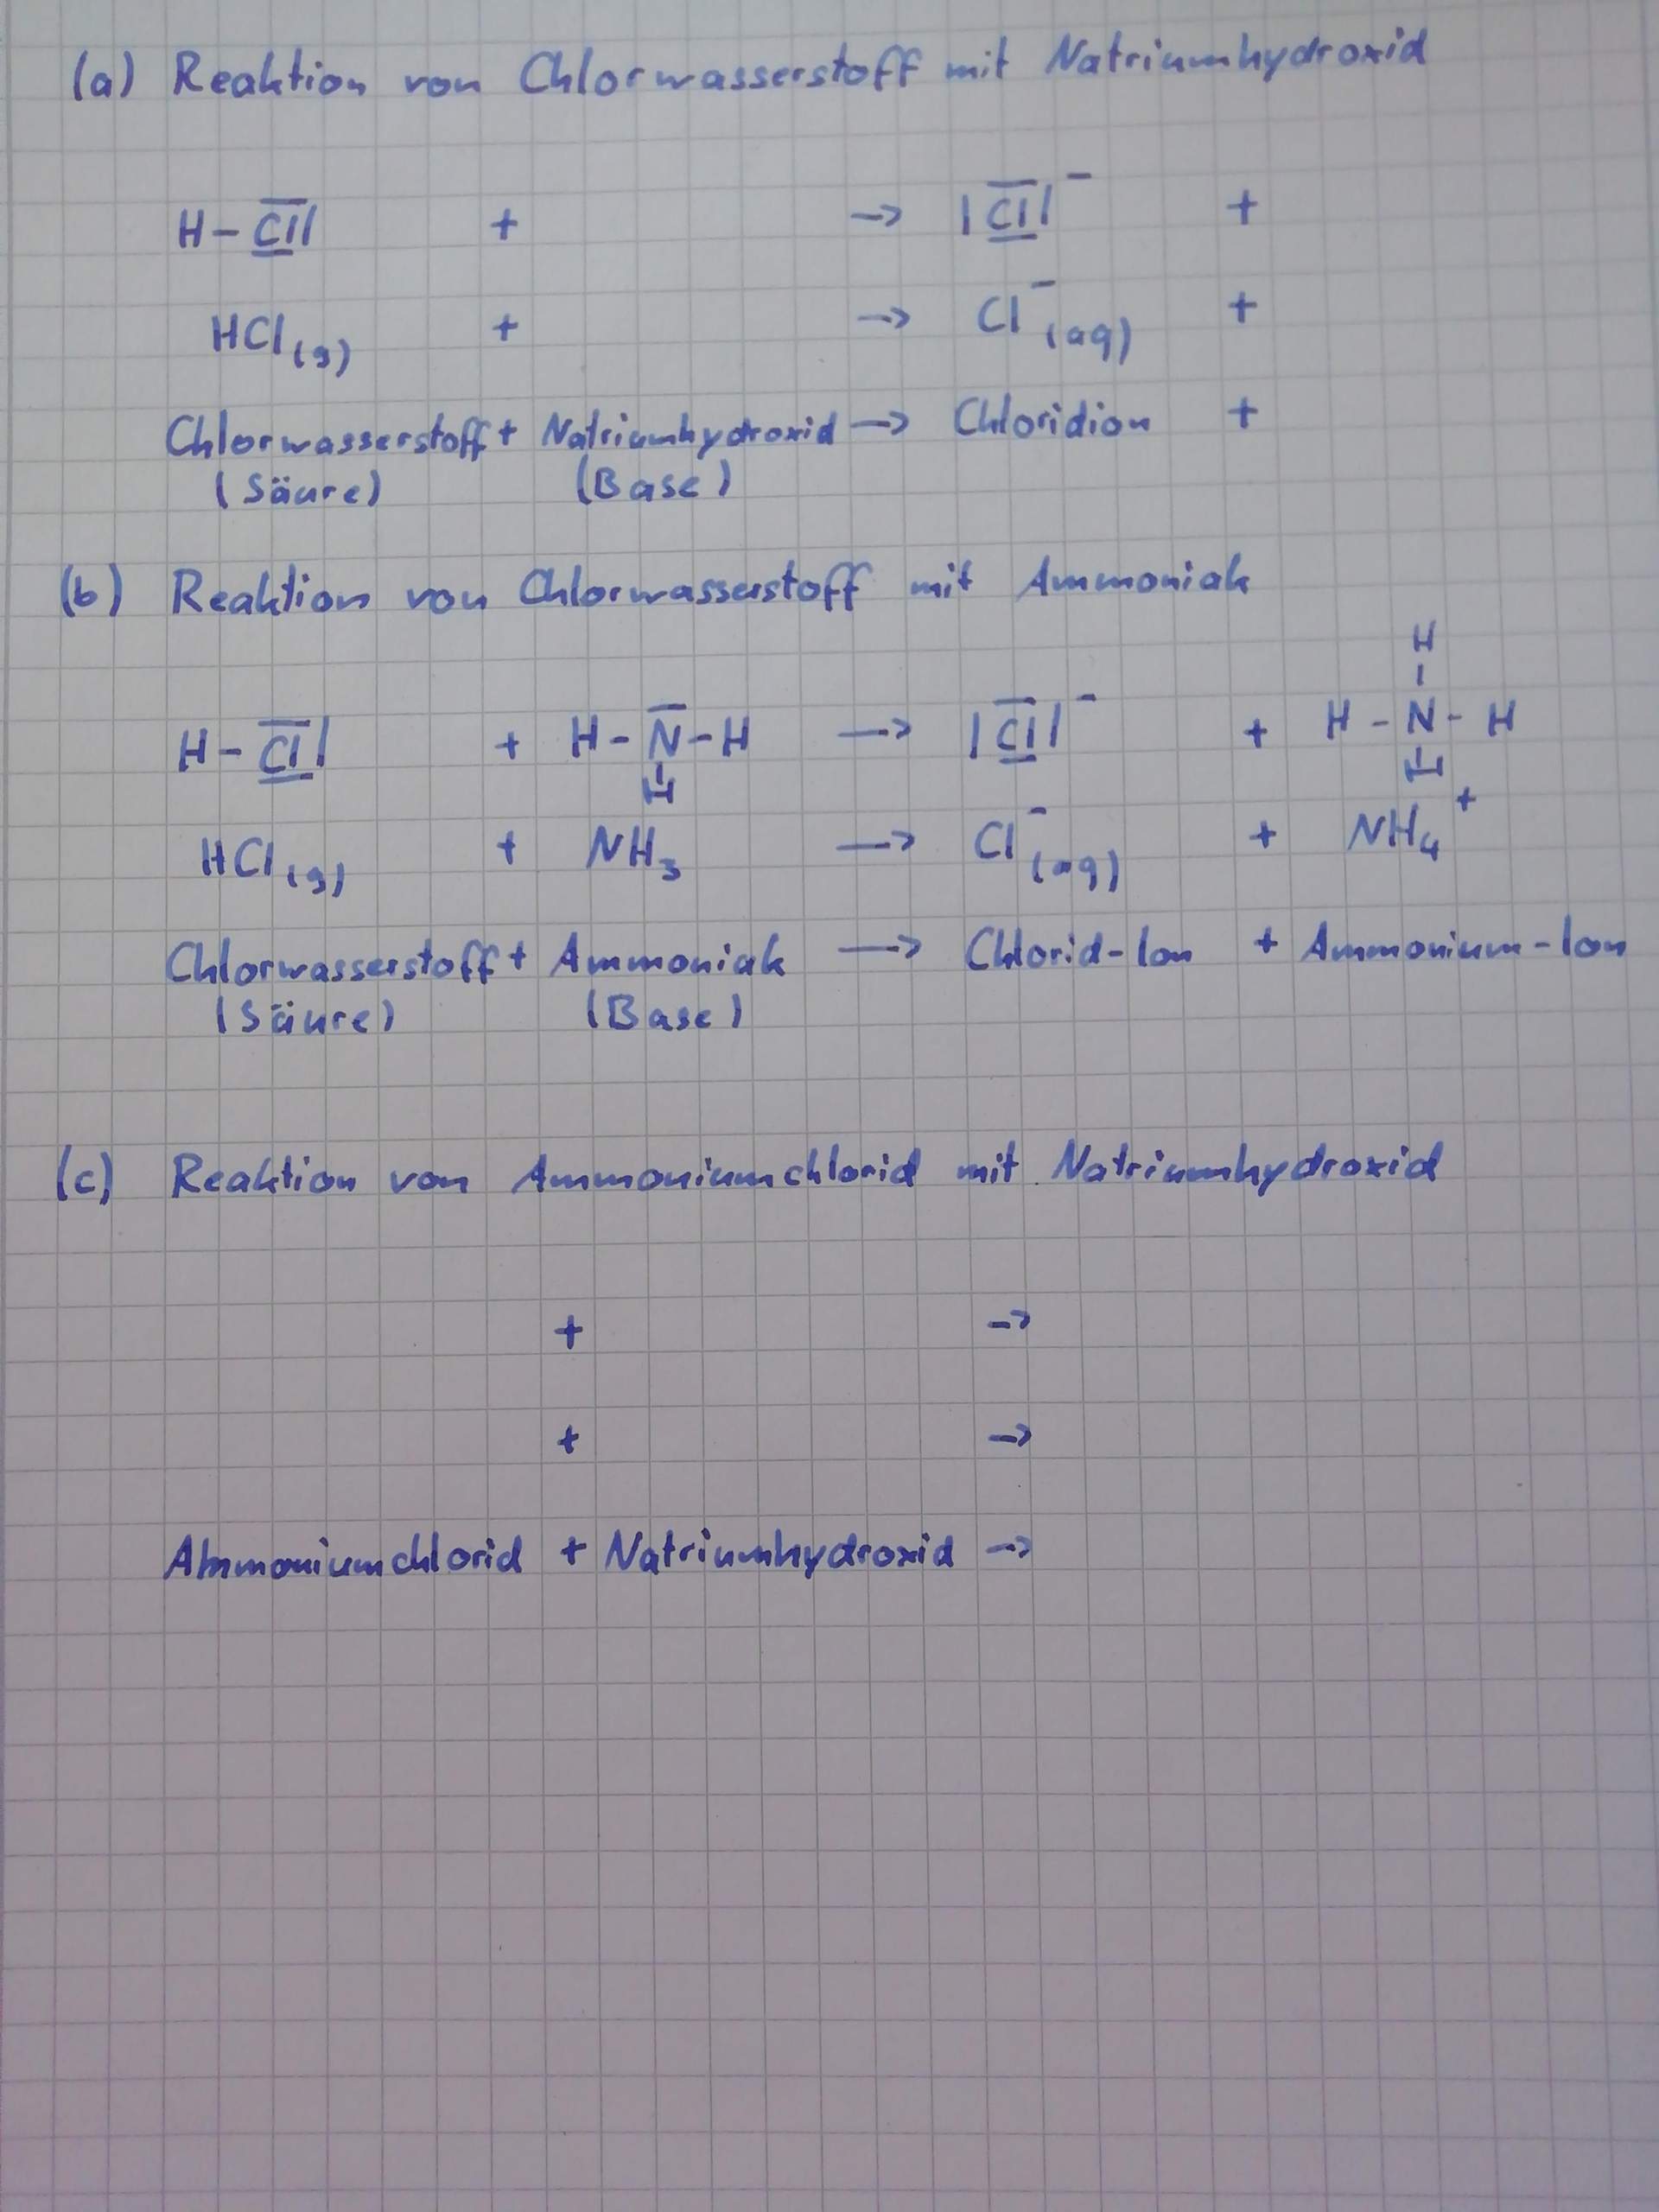 (a) Reaktion von Chlorwasserstoff mit Natriumhydroxid
H – C̲̅l̲̅| + → |C̲̅l̲̅|⁻ +
HCl₍g₎ + → Cl⁻₍aq₎ +
Chlorwasserstoff + Natriumhydroxid → Chloridion +
(Säure) (Base)
(b) Reaktion von Chlorwasserstoff mit Ammoniak
H
|
H – C̲̅l̲̅| + H – N̅ – H → |C̲̅l̲̅|⁻ + H – N – H
| |
H H
HCl₍g₎ + NH₃ → Cl⁻₍aq₎ + NH₄⁺
Chlorwasserstoff + Ammoniak → Chlorid-Ion + Ammonium-Ion
(Säure) (Base)
(c) Reaktion von Ammoniumchlorid mit Natriumhydroxid
+ →
+ →
Ammoniumchlorid + Natriumhydroxid →